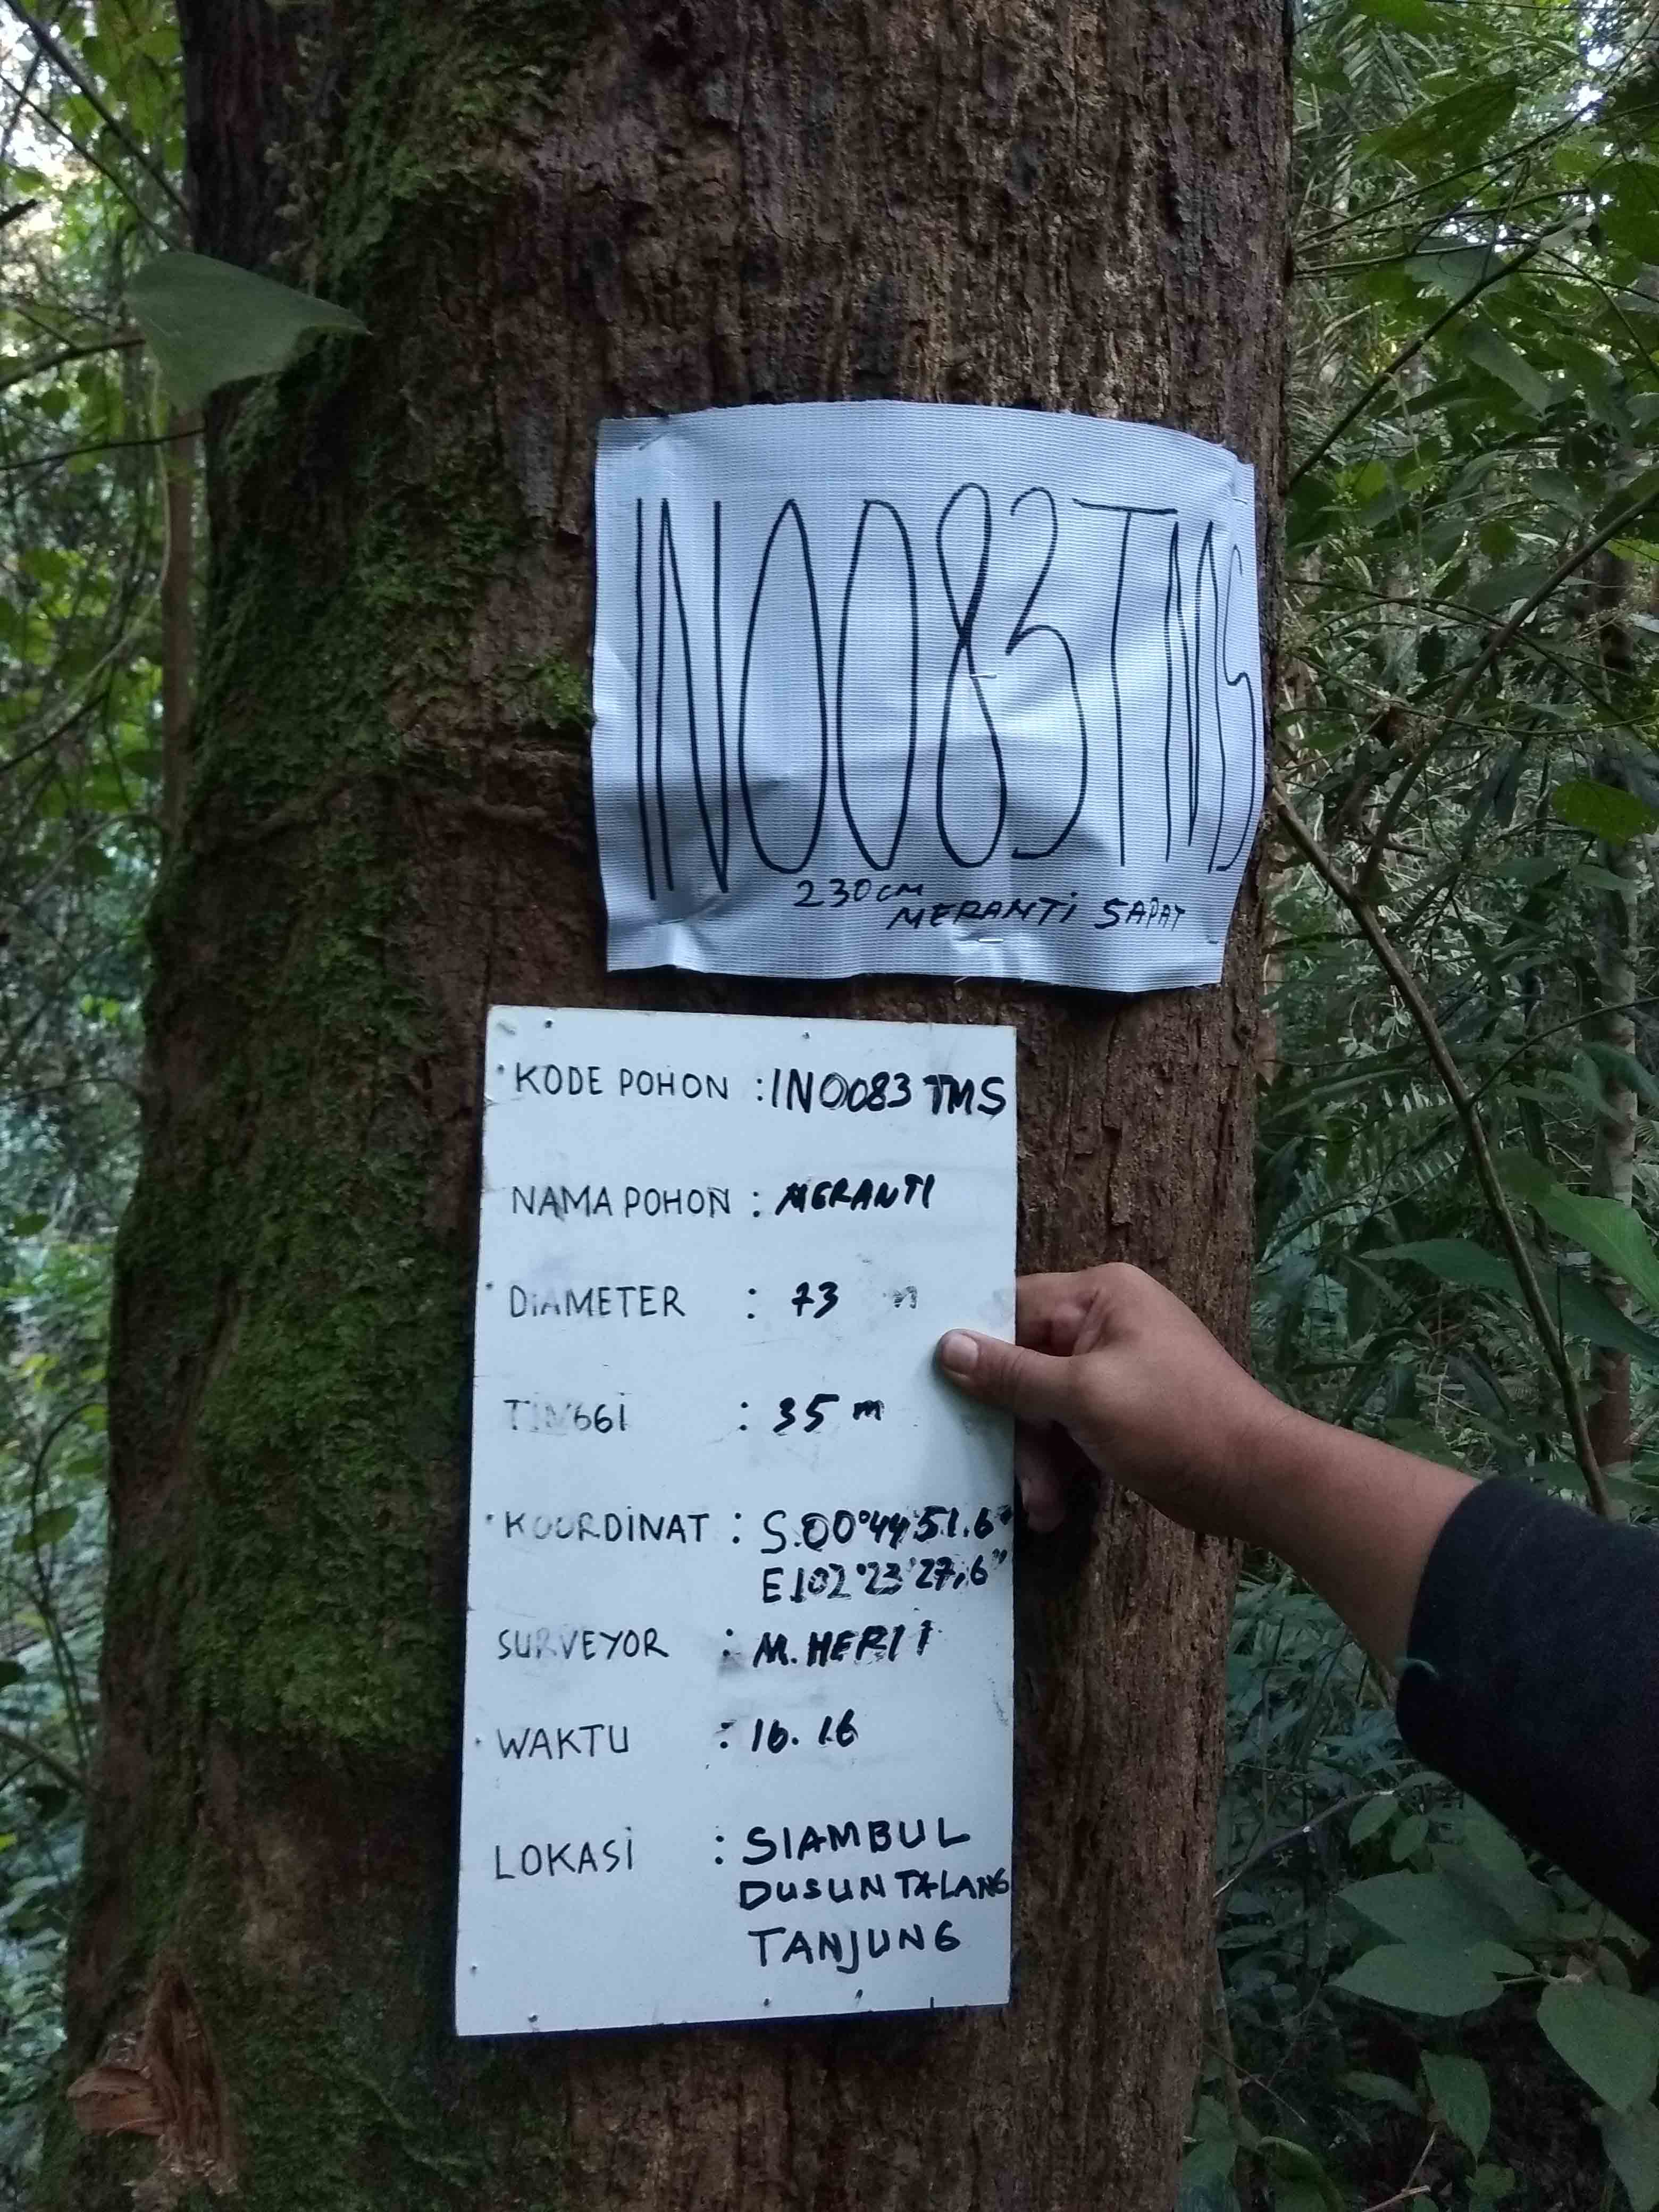 IN0083TMS
230 cm
MERANTI SAPAT
KODE POHON : IN0083 TMS
NAMA POHON : MERANTI
DIAMETER : 73 m
TINGGI : 35 m
KOORDINAT : S.00°44'51.6"
E.102°23'27,6"
SURVEYOR : M. HERI
WAKTU : 16.16
LOKASI : SIAMBUL
DUSUN TALANG
TANJUNG